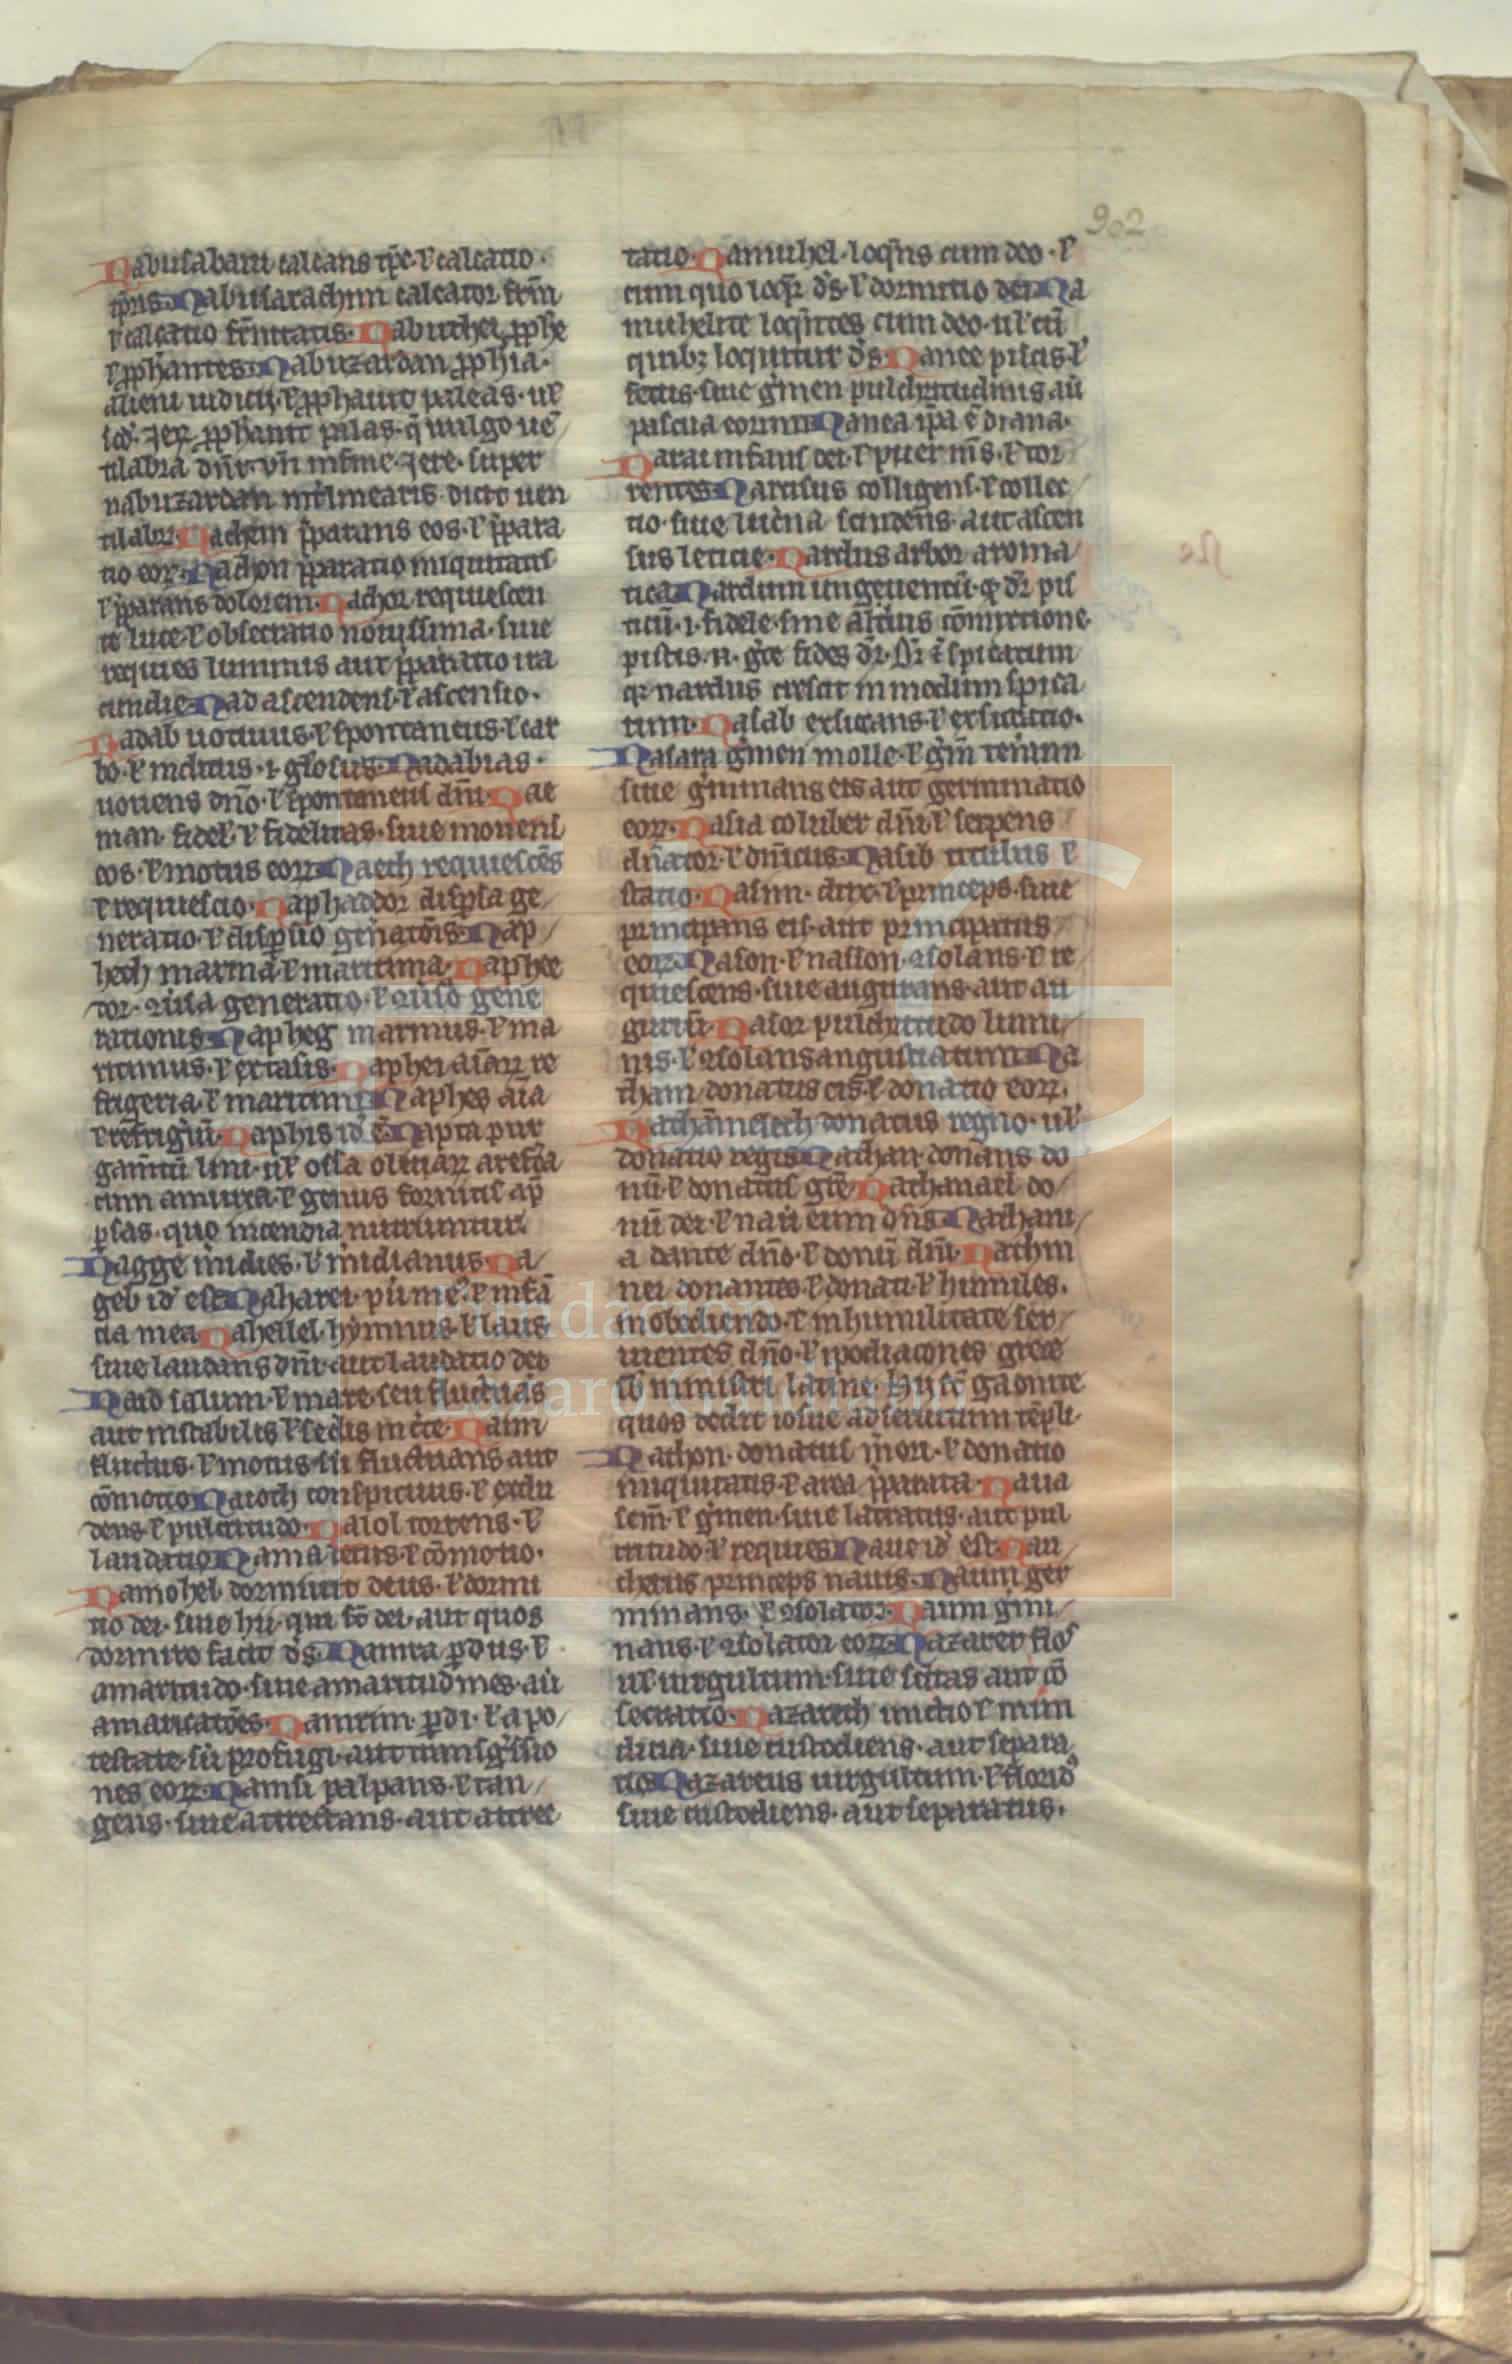 902
Nabusabam calcans tp̄e ł calcatio
tp̄ris. Nabusarachim calcator fir̄m
ł calcatio fir̄mitatis. Nabuthei ꝓph̄e
ł ꝓph̄antes. Nabuzardan ꝓph̄ia
alieni iudicij ł ꝓph̄auit paleas. ul̄
nabuzardan dicto uen
tilabꝝ. Nachem p̄parans eos. ł p̄para
tio eoꝝ. Nachon p̄paratio iniquitatis
ł p̄parans dolorem. Nachor requiescen
te luce. ł obsecratio nouissima. siue
requies luminis aut p̄paratio ira
cundie. Nad ascendens. ł ascensio.
Nadab uotiuus. ł spontaneus. ł car
bo. ł inclitus. i. gl̄osus. Nadabias.
uouens dn̄o. ł spontaneus dn̄i. Nae
man. fidel. ł fidelitas. siue mouens
eos. ł motus eoꝝ. Naech requiescēs
ł requiescio. Naphaddor disp̄sa ge
neratio. ł disp̄sio gn̄atōis. Nap
hech marina. ł maritima. Naphec
dor. ɔu̇sa generatio. ł ɔu̇sio gene
rationis. Napheg marinus. ł ma
ritimus. ł ectasis. Naphei aīaꝝ re
frigeria. ł maritimi. Naphes aīa
ł refrigiū. Naphis id ē. Napta pur
gam̄tū lini. ul̄ ossa oliuaꝝ arefc̄a
cum amurca. ł genus fomitis ap̄
p̄sas. quo incendia nutriuntur.
Nagge midies. ł midianus. Na
geb id est. Naharei. pu̇i mei. ł infā
tia mea. Nahellel. hymnus. ł laus
siue laudans dn̄m. aut laudatio dei
Naid salum. ł mare. seu fluctuās
aut instabilis ł sedis inc̄te. Naim
fluctus. ł motus. siue fluctuans aut
cōmotio. Naioth conspicuus. ł exclu
dens. ł pulcritudo. Naiol torrens. ł
laudatio. Nama letus. ł cōmotio.
Namohel dormiuit deus. ł dormi
tio dei. siue hii. qui sc̄ dei. aut quos
dormire facit dȿ. Namra p̄dus. ł
amaritudo. siue amaritudines. au̇
amaricatōes. Namrim. p̄di. ł apo
testate. siue profugi. aut tinsgr̄ssio
nes eoꝝ. Namsi palpans. ł tan
gens. siue attrectans. aut attrec
tatio. Namuhel. loqn̄s cum deo. ł
cum quo loq̄r dȿ. ł dormitio dei. Na
muhelite loqn̄tes cum deo. ul̄ cū
quibꝫ loquitur dȿ. Nanee piscis. ł
fetus. siue gm̄en pulchritudinis. au̇
pascua eorum. Nanea ip̄a ē diana.
Narai infans dei. ł puer m̄s. ł tor
rentes. Narcisus colligens. ł collec
tio. siue lucerna scindens. aut ascen
sus leticie. Nardus arbor aroma
tica. Nardum ungeuentū. q̄ dr̄ pis
ticū. i. fidele. sine alicuius cōmixtione.
pistis. n. gr̄e fides dr̄. Dr̄ ē spicatum
q̄ nardus crescit in modum spica
rum. Nasab exsiccans. ł exsiccatio.
Nasara gm̄en molle. ł gm̄ tenerum
siue gm̄inans eis aut germinatio
eoꝝ. Nasia coluber dn̄i. ł serpens
dn̄ator. ł dn̄icus. Nasib titulus ł
statio. Nasim. dux. ł princeps. siue
principans eis. aut principatus
eoꝝ. Nason. ł nasson. ɔsolans. ł re
quiescens. siue augurans. aut au
guriū. Nasor pulchritudo lumi
nis. ł ɔsolans angustiatum. Na
tham donatus eis. ł donatio eoꝝ.
Nathanmelech donatus regno. ul̄
donatio regis. Nathan. donans do
nū. ł donatus gr̄e. Nathanael do
nū dei. ł nati eum dn̄s. Nathani
a dante dn̄o. ł donū dn̄i. Nathin
nei donantes. ł donati. ł humiles.
in obediendo. ł in humilitate ser
uientes dn̄o. ł ipodiacones grece
sb̄ ministri latine. Hii sc̄ gaonite
quos dedit iosue ad seruitium tēpli.
Nathon. donatus m̄ori. ł donatio
iniquitatis. ł area p̄parata. Naua
sem̄. ł gm̄en. siue latratus. aut pul
critudo. ł requies. Naue id est. Nau
clerus princeps nauis. Naum ger
minans. ł ɔsolator. Naum gm̄i
nans. ł ɔsolator eoꝝ. Nazareb flos
ul̄ uirgultum. siue sc̄itas aut cō
secratio. Nazareth unctio ł mun
dicia. siue custodiens. aut separa
tio. Nazareus uirgultum. ł florid'
siue custodiens. aut separatus.
FLG
Fundación
Lázaro Galdiano